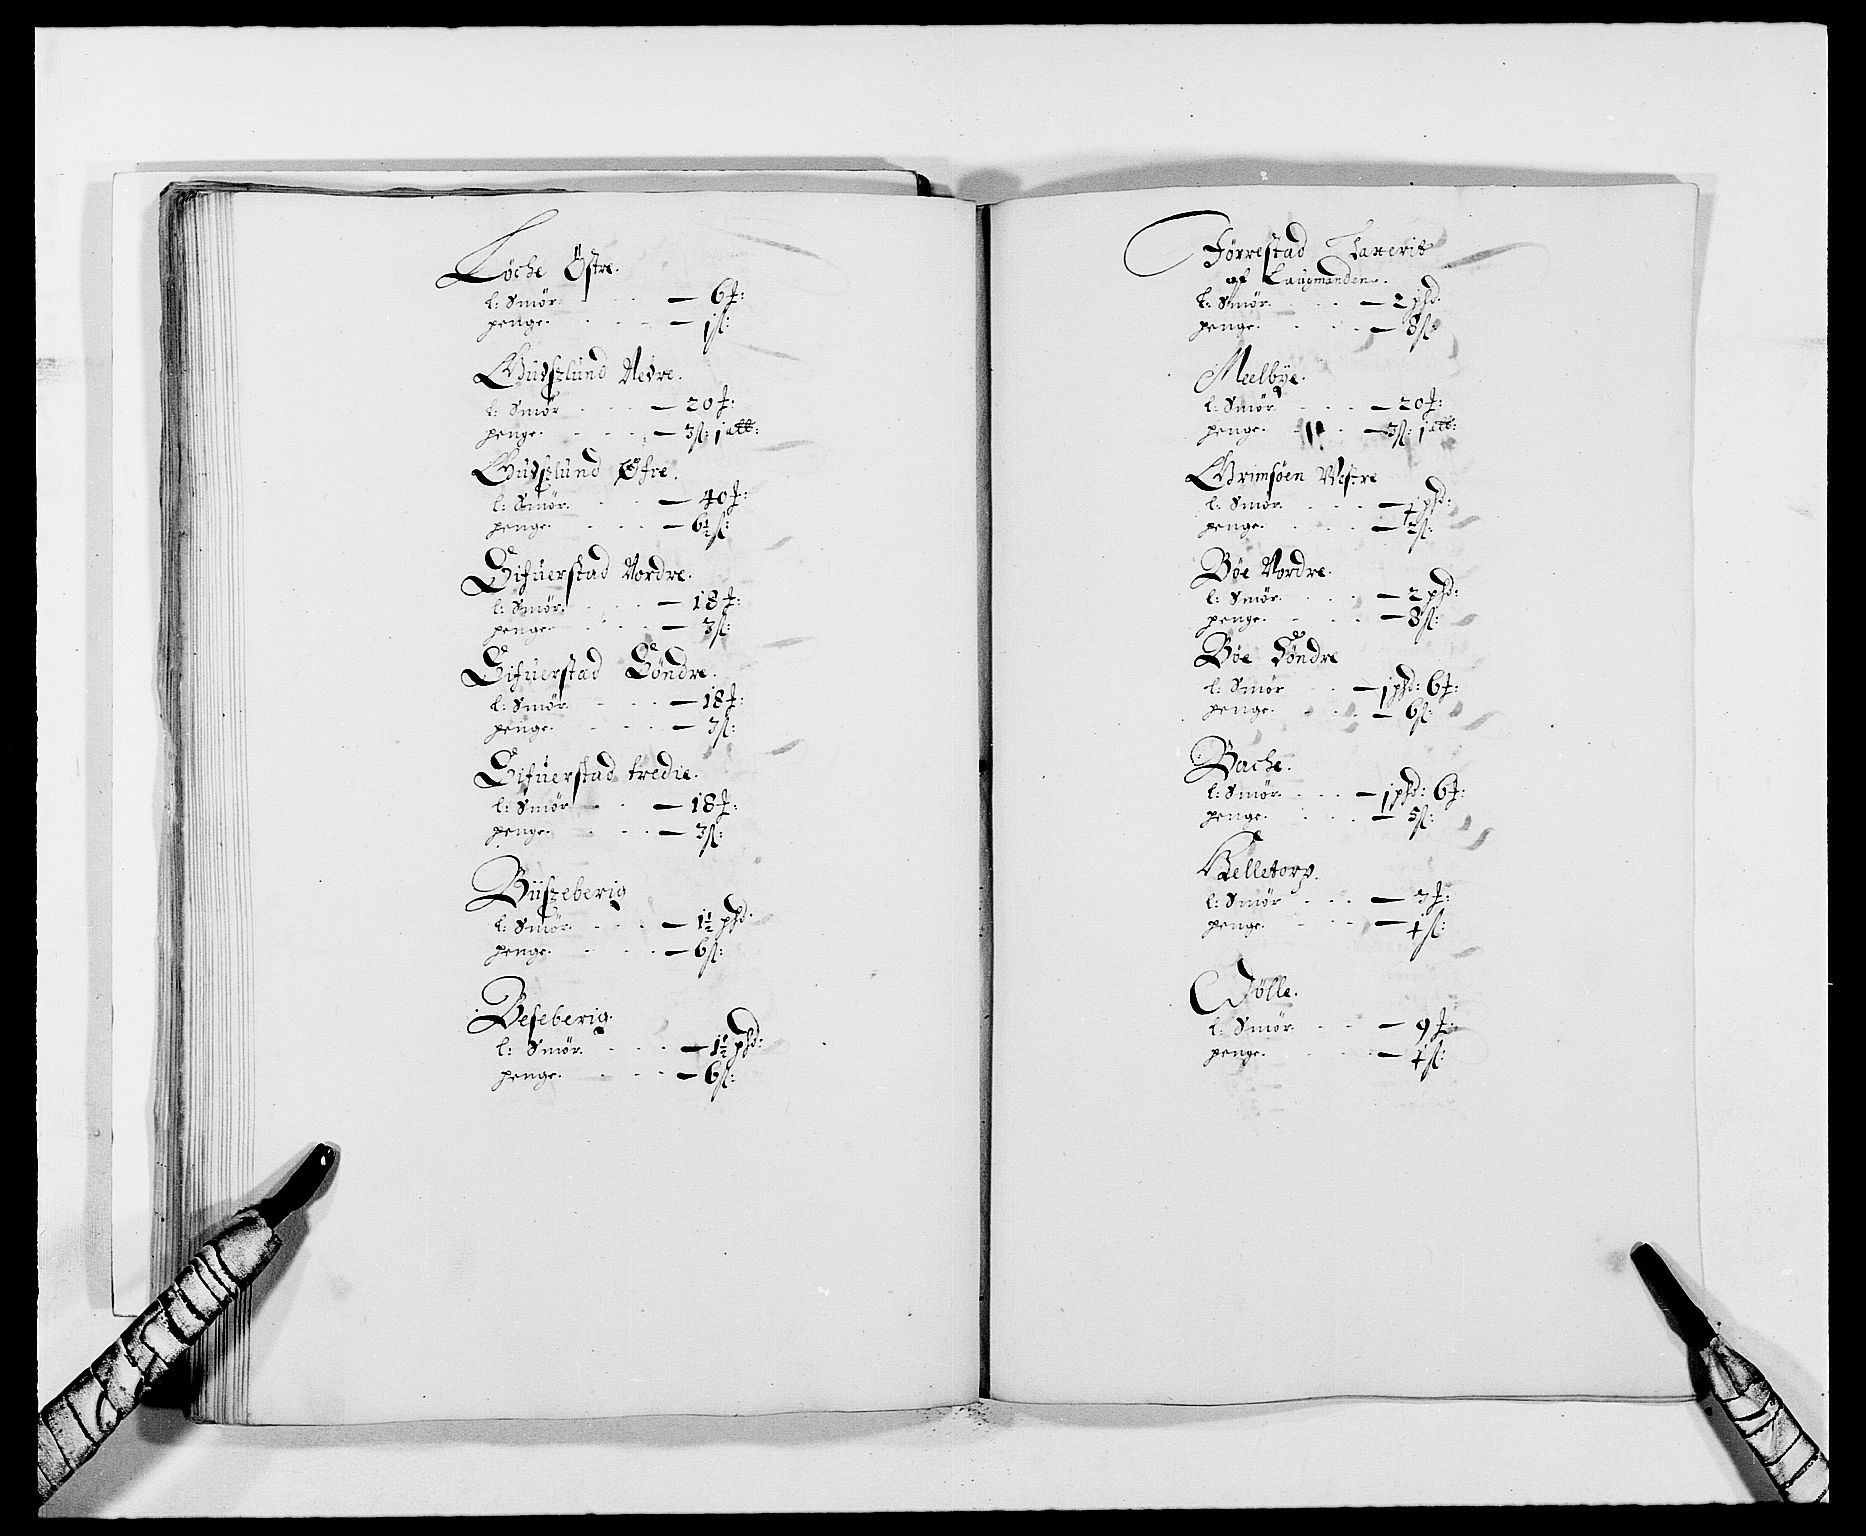 Løche Østre.
l: Smør. — 6 ℔:
penge. — 1 ß:
Gudszlund Nedre.
l: Smør — 20 ℔:
penge. — 3 ß: 1 alb:
Gudszlund Øfre.
l: Smør. — 40 ℔:
penge. — 6½ ß:
Sifuerstad Nordre.
l: Smør. — 18 ℔:
penge. — 3 ß:
Sifuerstad Söndre.
l: Smør. — 18 ℔:
penge. — 3 ß:
Sifuerstad tredie.
l: Smør — 18 ℔:
penge. — 3 ß:
Büszeberig
l: Smør. — 1½ phd.
penge. — 6 ß:
Beseberig.
l: Smør. — 1½ phd:
penge. — 6 ß:
Tørrestad Taxerit
af Laugmanden.
l: Smør. — 2 phd.
penge. — 8 ß:
Meelbye.
l: Smør. — 20 ℔:
penge. — 3 ß: 1 alb:
Grimsøen Westre
l: Smør. — 1 phd:
penge. — 2 ß:
Bøe Nordre.
l: Smør. — 2 phd:
penge. — 8 ß:
Bøe Söndre
l: Smør — 1 phd: 6 ℔:
penge. — 6 ß:
Bache.
l: Smør. — 1 phd: 6 ℔:
penge. — 5 ß:
Helletorp.
l: Smør — 3 ℔:
penge. — 1 ß:
Dølle.
l: Smør. — 9 ℔:
penge. — 1 ß: